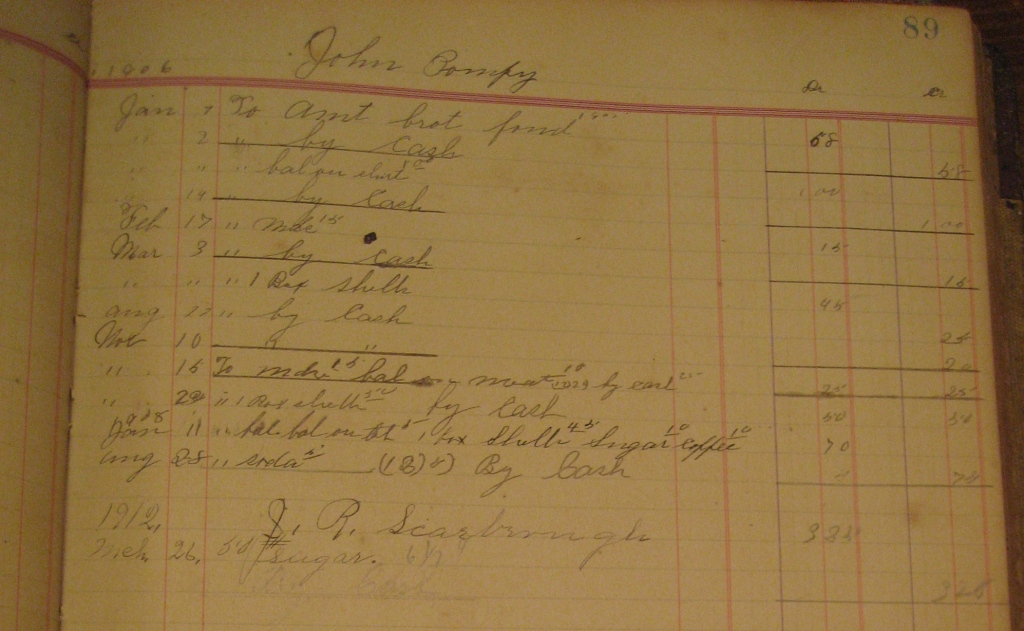 89
1906 John Pompy
Dr Cr
Jan 7 To Amt brot
" 2 " by Cash 58
" " " bal on shirt 58
" 19 " by Cash 1 00
Feb 17 " mdse 15 1 00
Mar 3 " by Cash 15
" " " 1 Box shells 15
Aug " by Cash 45
Nov 10 " " 25
" 15 To mdse 15 bal meat 10 by cash 25 20
" 29 " 1 Box shells 50 by Cash 25 25
1908
Jan 11 " bal on 1 box Shells 45 Sugar 10 Coffee 10 50 50
Aug 28 " soda 5 By Cash 70
75
1912, J. R. Scarbrough
Mch. 26, 50# sugar. 6½ 325
325